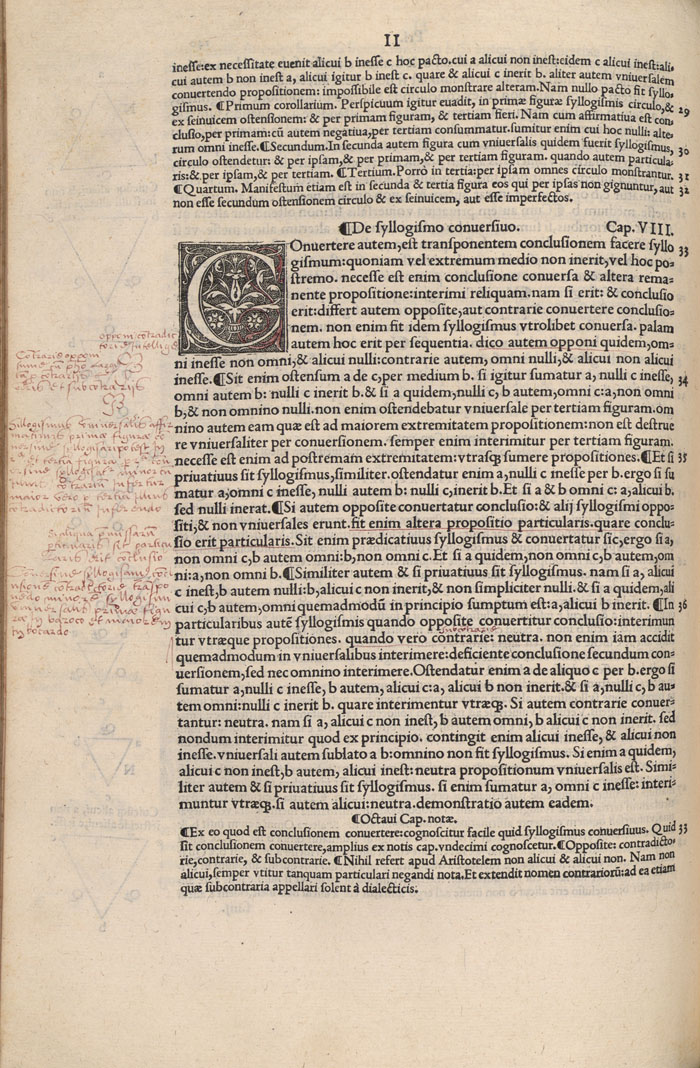 II
inesse:ex necessitate euenit alicui b inesse c hoc pacto.cui a alicui non inest:eidem c alicui inest:ali-
cui autem b non inest a, alicui igitur b inest c. quare & alicui c inerit b. aliter autem vniuersalem
conuertendo propositionem: impossibile est circulo monstrare alteram.Nam nullo pacto fit syllo-
gismus. ¶Primum corollarium. Perspicuum igitur euadit, in primæ figuræ syllogismis circulo,& 29
ex seinuicem ostensionem: & per primam figuram, & tertiam fieri. Nam cum affirmatiua est con-
clusio,per primam:cū autem negatiua,per tertiam consummatur.sumitur enim cui hoc nulli: alte-
rum omni inesse.¶Secundum.In secunda autem figura cum vniuersalis quidem fuerit syllogismus, 30
circulo ostendetur: & per ipsam,& per primam,& per tertiam figuram. quando autem particula-
ris:& per ipsam,& per tertiam. ¶Tertium.Porrò in tertia:per ipsam omnes circulo monstrantur. 31
¶Quartum. Manifestum etiam est in secunda & tertia figura eos qui per ipsas non gignuntur, aut 32
non esse secundum ostensionem circulo & ex seinuicem, aut esse imperfectos.
¶De syllogismo conuersiuo. Cap. VIII.
COnuertere autem,est transponentem conclusionem facere syllo 33
gismum:quoniam vel extremum medio non inerit,vel hoc po-
stremo. necesse est enim conclusione conuersa & altera rema-
nente propositione:interimi reliquam.nam si erit: & conclusio
erit:differt autem opposite,aut contrarie conuertere conclusio-
nem. non enim fit idem syllogismus vtrolibet conuersa. palam
autem hoc erit per sequentia. dico autem opponi quidem,om-
ni inesse non omni,& alicui nulli:contrarie autem, omni nulli,& alicui non alicui
inesse.¶Sit enim ostensum a de c,per medium b. si igitur sumatur a, nulli c inesse, 34
omni autem b: nulli c inerit b.& si a quidem,nulli c, b autem,omni c:a,non omni
b,& non omnino nulli.non enim ostendebatur vniuersale per tertiam figuram.om
nino autem eam quæ est ad maiorem extremitatem propositionem:non est destrue
re vniuersaliter per conuersionem. semper enim interimitur per tertiam figuram.
necesse est enim ad postremam extremitatem:vtrasq; sumere propositiones.¶Et si 35
priuatiuus sit syllogismus,similiter. ostendatur enim a,nulli c inesse per b.ergo si su
matur a,omni c inesse, nulli autem b: nulli c,inerit b.Et si a & b omni c: a,alicui b.
sed nulli inerat.¶Si autem opposite conuertatur conclusio:& alij syllogismi oppo-
siti,& non vniuersales erunt.fit enim altera propositio particularis.quare conclu-
sio erit particularis.Sit enim prædicatiuus syllogismus & conuertatur sic,ergo si a,
non omni c,b autem omni:b,non omni c.Et si a quidem,non omni c,b autem,om
ni:a,non omni b.¶Similiter autem & si priuatiuus sit syllogismus. nam si a, alicui
c inest,b autem nulli:b,alicui c non inerit,& non simpliciter nulli.& si a quidem,ali
cui c,b autem,omni quemadmodū in principio sumptum est:a,alicui b inerit. ¶In 36
particularibus autē syllogismis quando opposite conuertitur conclusio:interimun
tur vtræque propositiones. quando vero contrarie: neutra. non enim iam accidit
quemadmodum in vniuersalibus interimere:deficiente conclusione secundum con-
uersionem,sed nec omnino interimere.Ostendatur enim a de aliquo c per b.ergo si
sumatur a,nulli c inesse, b autem, alicui c:a, alicui b non inerit.& si a,nulli c, b au-
tem omni:nulli c inerit b. quare interimentur vtræq;. Si autem contrarie conuer-
tantur: neutra. nam si a, alicui c non inest, b autem omni, b alicui c non inerit. sed
nondum interimitur quod ex principio. contingit enim alicui inesse, & alicui non
inesse.vniuersali autem sublato a b:omnino non fit syllogismus. Si enim a quidem,
alicui c non inest,b autem, alicui inest:neutra propositionum vniuersalis est. Simi-
liter autem & si priuatiuus sit syllogismus. si enim sumatur a, omni c inesse: interi-
muntur vtræq;.si autem alicui:neutra.demonstratio autem eadem.
¶Octaui Cap.notæ.
¶Ex eo quod est conclusionem conuertere:cognoscitur facile quid syllogismus conuersiuus. Quid 33
sit conclusionem conuertere,amplius ex notis cap.vndecimi cognoscetur.¶Opposite: contradicto-
rie,contrarie, & subcontrarie. ¶Nihil refert apud Aristotelem non alicui & alicui non. Nam non
alicui,semper vtitur tanquam particulari negandi nota.Et extendit nomen contrariorū:ad ea etiam
quæ subcontraria appellari solent à dialecticis.